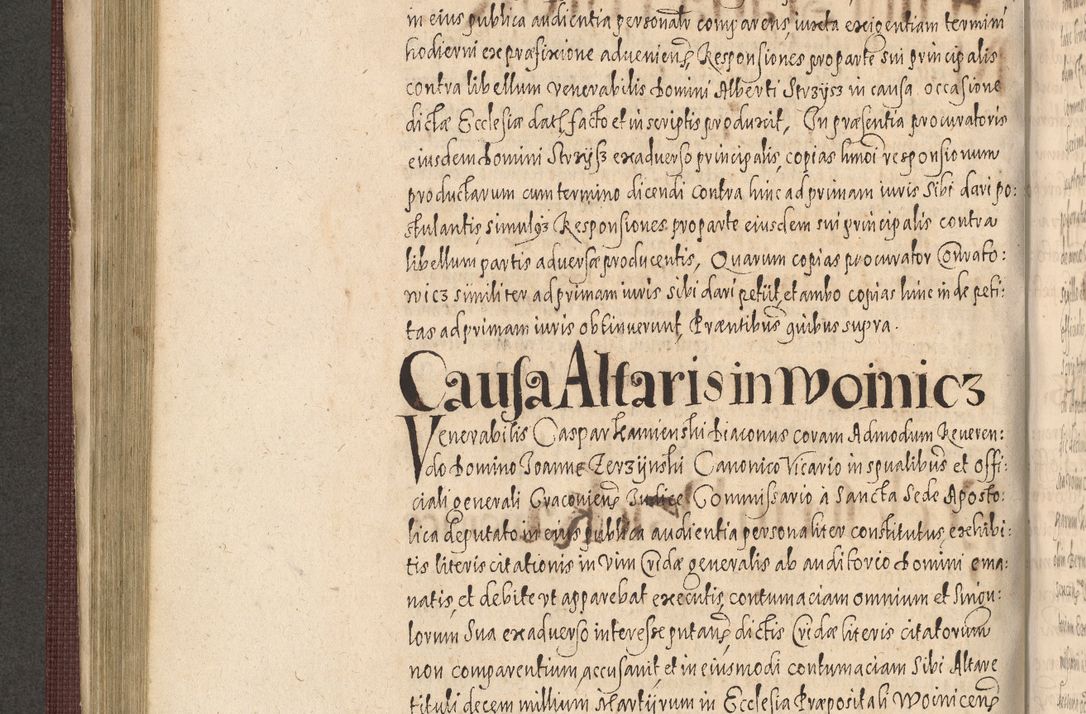 in eius publica audientia personalr comparens, iuxta exigentiam termini
hodierni ex præfixione adueniens Responsiones pro parte sui principalis
contra libellum venerabilis Domini Alberti Strzysz in causa occasione
dictæ Ecclesiæ dat, facto et in scriptis produxit, In præsentia procuratoris
eiusdem Domini Strzysz ex aduerso principalis, copias hmoi responsionum
productarum cum termino dicendi contra hinc ad primam iuris sibi dari po:
stulantis, simulqз Responsiones pro parte eiusdem sui principalis contra
libellum partis aduersæ producentis, Quarum copias procurator Conrato:
wicz similiter ad primam iuris sibi dari petiit, et ambo copias hinc inde peti:
tas ad primam iuris obtinuerunt, Præntibus quibus supra.
Causa Altaris in Woinicz
Venerabilis Caspar Kamienski Diaconus coram Admodum Reueren:
do Domino Joanne Zerzijnski Canonico Vicario in spualibus et Offi:
ciali generali Cracouiens Judice Commissario à Sancta Sede Aposto:
lica deputato in eius publica audientia personaliter constitutus, exhibi:
tis literis citationis in vim Cridæ generalis ab auditorio Domini ema:
natis, et debite vt apparebat executis, contumaciam omnium et singu:
lorum sua ex aduerso interesse putans, dictis Cridæ literis citatorum
non comparentium, accusauit, et in eiusmodi contumaciam sibi Altare
tituli decem millium Martijrum in Ecclesia Præpositali Woinicens